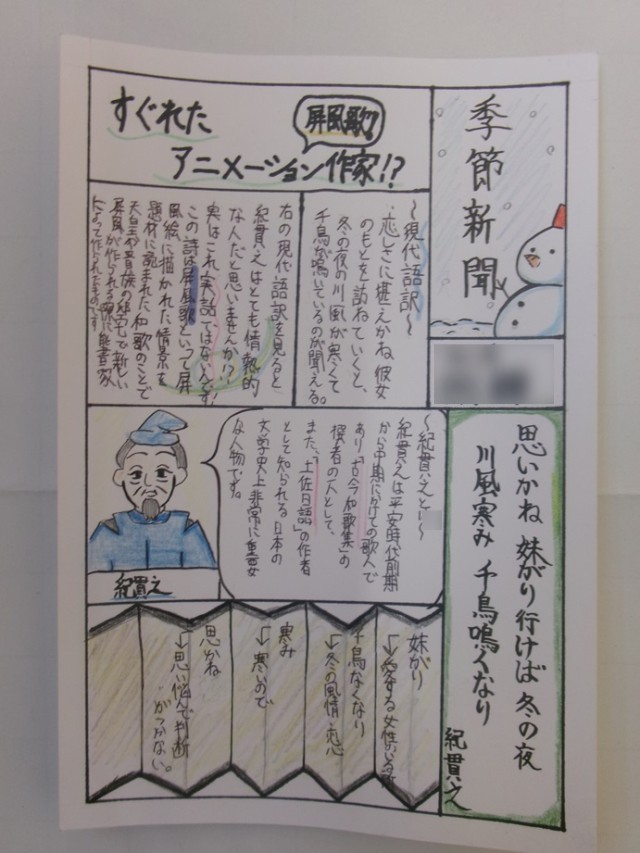 季節新聞
すぐれた
屏風歌
アニメーション作家!?
思いかね 妹がり行けば 冬の夜
川風寒み 千鳥鳴くなり
紀貫之
〜現代語訳〜
恋しさに堪えかね、彼女
のもとを訪ねていくと、
冬の夜の川風が寒くて
千鳥が鳴いているのが聞える。
右の現代語訳を見ると
紀貫之はとても情熱的
な人だと思いませんか!?
実はこれ実話ではないんです!
この詩は屏風歌といって屏
風絵に描かれた情景を
題材に詠まれた和歌のことで
天皇や貴族の
屏風が作られる際に
によって作られたものです
〜紀貫之と〜
紀貫之は平安時代前期
から中期にかけての歌人で
あり「古今和歌集」の
撰者の一人として、
また、「土佐日記」の作者
として知られる日本の
文学史上非常に重要
な人物です。
紀貫之
妹がり
→愛する女性のいる
千鳥なくなり
→冬の風情・恋心
寒み
→寒いので
思かね
→思い悩んで判断
がつかない。